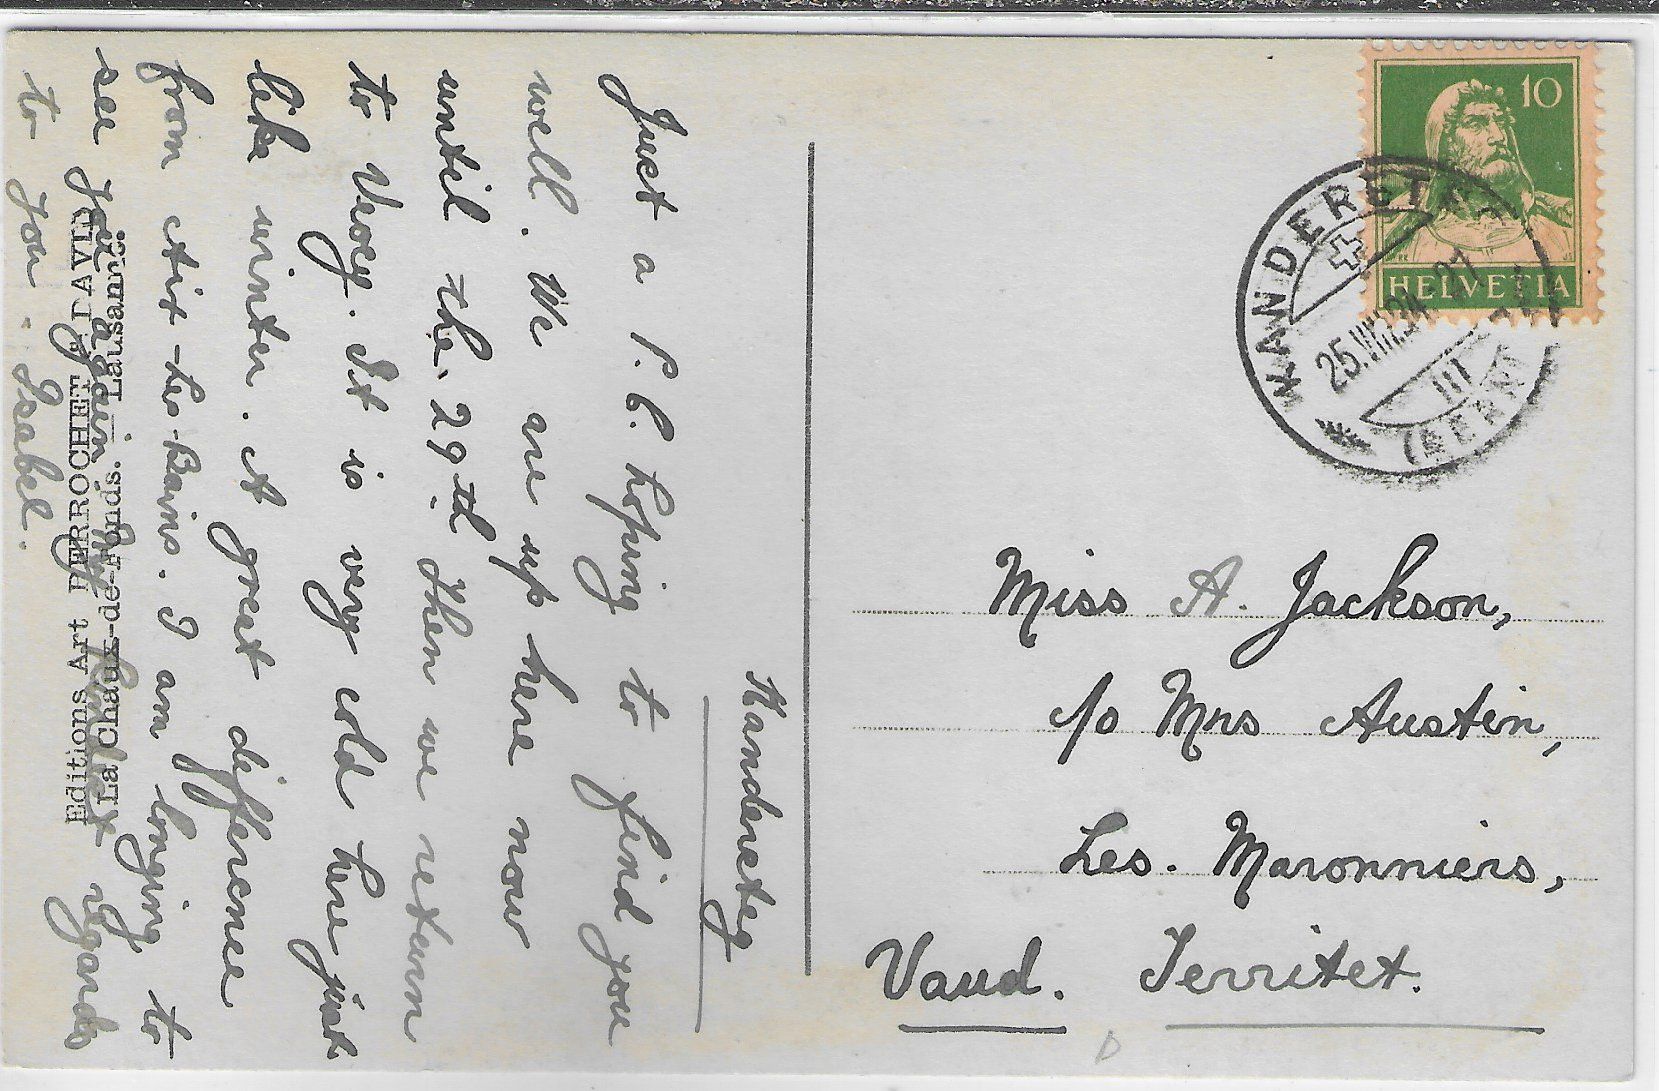 Kandersteg
Just a P.C. hoping to find you
well. We are up here now
until the 29th. Then we return
to Vevey. It is very cold here just
like winter. A great difference
from Aix-les-Bains. I am longing to
see you again. My kindest regards
to you - Isabel.
Editions Art PERROCHET & DAVID
La Chaux-de-Fonds. Lausanne
10
HELVETIA
KANDERSTEG
25.VIII.24
III
(BERN)
Miss A. Jackson,
c/o Mrs Austin,
Les. Maronniers,
Vaud. Territet.